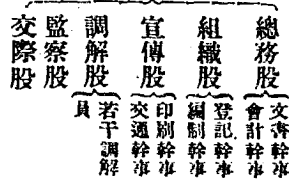 總務股
文書幹事
會計幹事
組織股
登記幹事
編制幹事
宣傳股
印刷幹事
交通幹事
調解股
若干調解
員
監察股
交際股